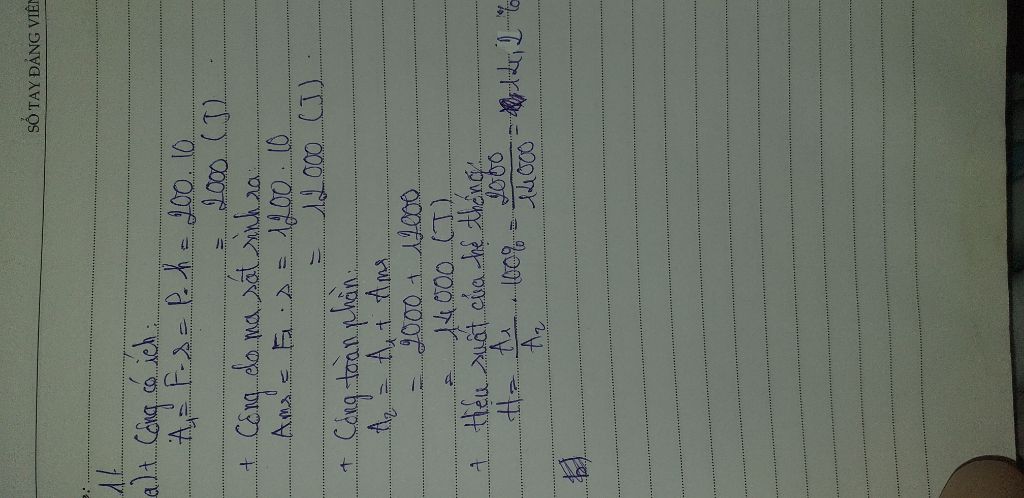 SỔ TAY ĐẢNG VIÊN
1/
a) + Công có ích:
A₁ = F. s = P. h = 200 . 10
= 2000 (J)
+ Công do ma sát sinh ra:
Ams = F₁ . s = 1200 . 10
= 12000 (J).
+ Công toàn phần:
A₂ = A₁ + Ams
= 2000 + 12000
= 14000 (J)
+ Hiệu suất của hệ thống:
H = A₁/A₂ . 100% = 2000/14000 = 14,2 %